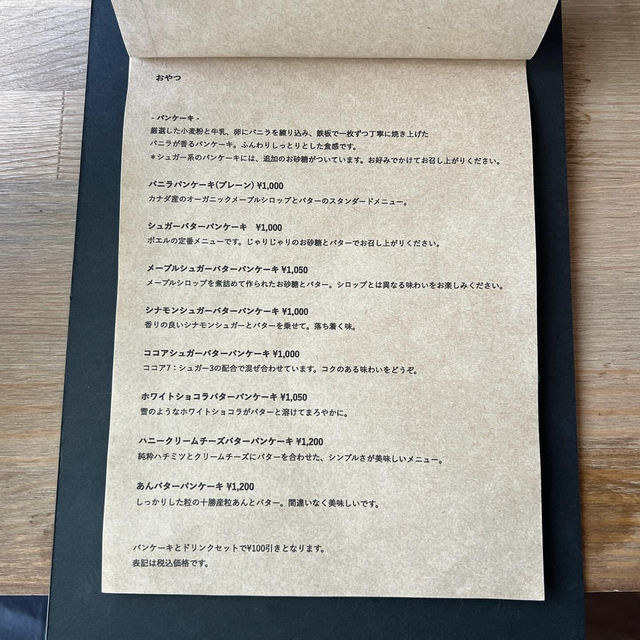 おやつ
- パンケーキ -
厳選した小麦粉と牛乳、卵にバニラを練り込み、鉄板で一枚ずつ丁寧に焼き上げた
バニラが香るパンケーキ。ふんわりしっとりとした食感です。
＊シュガー系のパンケーキには、追加のお砂糖がついています。お好みでかけてお召し上がりください。
バニラパンケーキ(プレーン) ¥1,000
カナダ産のオーガニックメープルシロップとバターのスタンダードメニュー。
シュガーバターパンケーキ　¥1,000
ポエルの定番メニューです。じゃりじゃりのお砂糖とバターでお召し上がりください。
メープルシュガーバターパンケーキ ¥1,050
メープルシロップを煮詰めて作られたお砂糖とバター。シロップとは異なる味わいをお楽しみください。
シナモンシュガーバターパンケーキ ¥1,000
香りの良いシナモンシュガーとバターを乗せて。落ち着く味。
ココアシュガーバターパンケーキ ¥1,000
ココア7：シュガー3の配合で混ぜ合わせています。コクのある味わいをどうぞ。
ホワイトショコラバターパンケーキ ¥1,050
雪のようなホワイトショコラがバターと溶けてまろやかに。
ハニークリームチーズバターパンケーキ ¥1,200
純粋ハチミツとクリームチーズにバターを合わせた、シンプルさが美味しいメニュー。
あんバターパンケーキ ¥1,200
しっかりした粒の十勝産粒あんとバター。間違いなく美味しいです。
パンケーキとドリンクセットで¥100引きとなります。
表記は税込価格です。